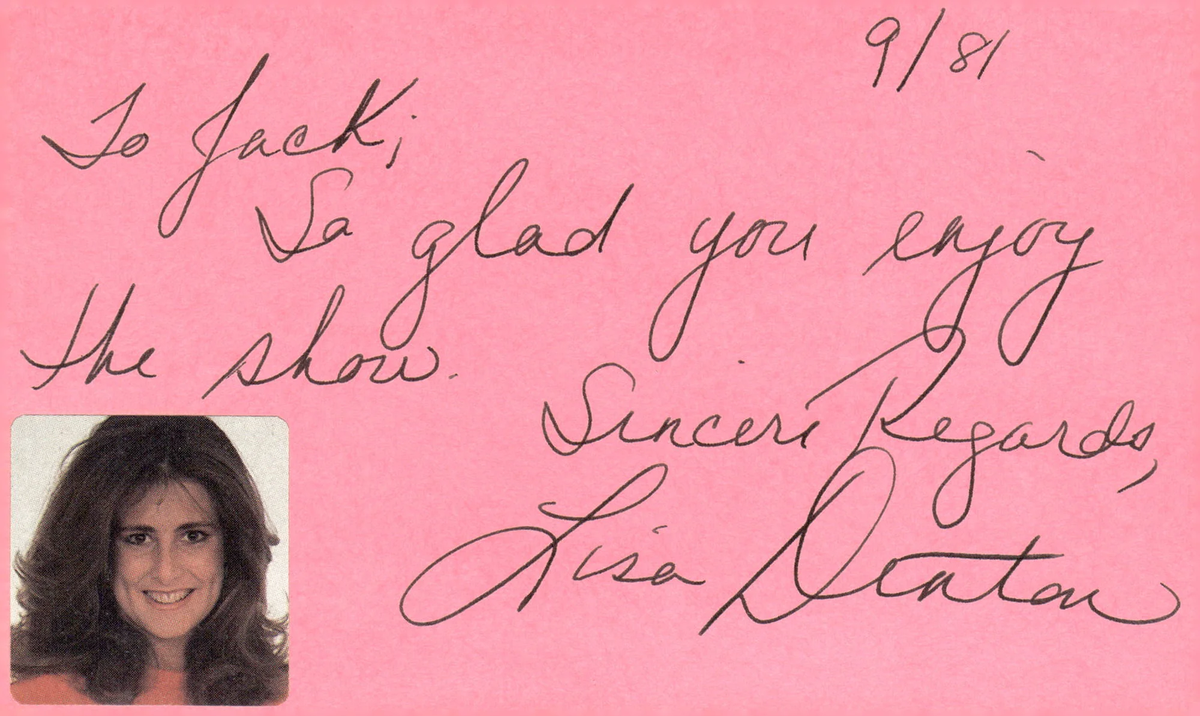 9/81
To Jack;
So glad you enjoy
the show.
Sincere Regards,
Lisa Denton